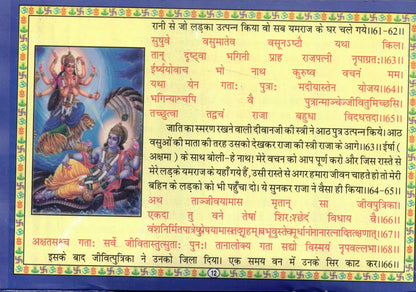 रानी से जो लड़का उत्पन्न किया वो सब यमराज के घर चले गये।।61-62।।
सुषुवे वसुमातेव वसूनऽष्टौ यथा किल
तान् दृष्टवा भगिनी प्राह राजपत्नी नृपाग्रतः।।63।।
ईर्ष्ययोवाच भो नाथ कुरुष्व वचनं मम
यथा येन गताः पुत्राः मदीयास्तेन योजय।।64।।
भगिन्याश्चापि वै पुत्रान्माञ्चेज्जीवितुमिच्छसि
तच्छ्रुत्वा तद्वचं राजा बहुधा विदधतदा।।65।।
जाति का स्मरण रखने वाली दीवानजी की स्त्री ने आठ पुत्र उत्पन्न किये। आठ
वसुओं की माता की तरह उसको देखकर राजा की स्त्री राजा के आगे।।63।। ईर्षा
(अक्षमा) के साथ बोली-हे नाथ! मेरे वचन को आप पूर्ण करो और जिस रास्ते से
मेरे लड़के यमराज के यहाँ गये हैं, उसी रास्ते से अगर हमारा जीवन चाहते हो तो मेरी
बहिन के लड़कों को भी पहुँचा दो। ये सुनकर राजा ने वैसा ही किया।।64-65।।
अथ ताञ्जीवयामास मृतान् सा जीवपुत्रिका।
एकदा तु वने तेषां शिरःश्छेदं विधाय वै।
अक्षतसश्च गताः सर्वे जीवितास्तुत्सुताः पुनः। तानालोक्य गता सद्यो विस्मयं नृपवल्लभा।।
इसके बाद जीवित्पुत्रिका ने उनको जिला दिया। एक समय वन में उनको सिर काट कर।।66।।
12